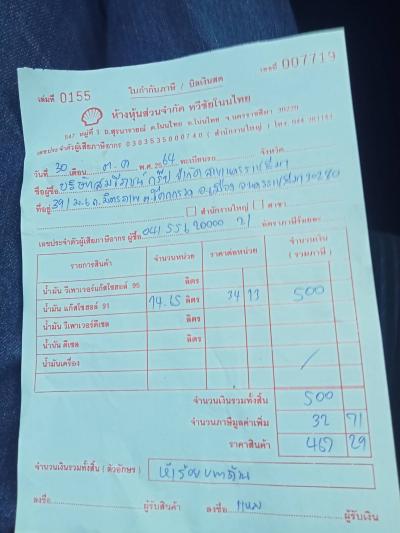 เล่มที่ 0155 ใบกำกับภาษี / บิลเงินสด เลขที่ 007719
ห้างหุ้นส่วนจำกัด ทวีชัยโนนไทย
047 หมู่ที่ 1 ถ.สุรนารายณ์ ต.โนนไทย อ.โนนไทย จ.นครราชสีมา 30220
เลขประจำตัวผู้เสียภาษีอากร 0303535000740 ( สำนักงานใหญ่ ) โทร. 044
วันที่ 30 เดือน ต.ค พ.ศ. 2564 ทะเบียนรถ จังหวัด
ชื่อผู้ซื้อ บริษัท จำกัด สาขานครราชสีมา
ที่อยู่ 391 ม.6 ถ.มิตรภาพ ต.โคกกรวด อ.เมือง จ.นครราชสีมา 30280
สำนักงานใหญ่ สาขา
เลขประจำตัวผู้เสียภาษีอากร ผู้ซื้อ อัตราภาษีร้อยละ
รายการสินค้า จำนวนหน่วย ราคาต่อหน่วย จำนวนเงิน ( รวมภาษี )
น้ำมัน วีเพาเวอร์แก๊สโซฮอล์ 95 ลิตร
น้ำมัน แก๊สโซฮอล์ 91 14.65 ลิตร 34 13 500
น้ำมัน วีเพาเวอร์ดีเซล ลิตร
น้ำมัน ดีเซล ลิตร
น้ำมันเครื่อง
จำนวนเงินรวมทั้งสิ้น 500
จำนวนภาษีมูลค่าเพิ่ม 32 71
ราคาสินค้า 467 29
จำนวนเงินรวมทั้งสิ้น ( ตัวอักษร ) ห้าร้อยบาทถ้วน
ลงชื่อ ผู้รับสินค้า ลงชื่อ ผู้รับเงิน